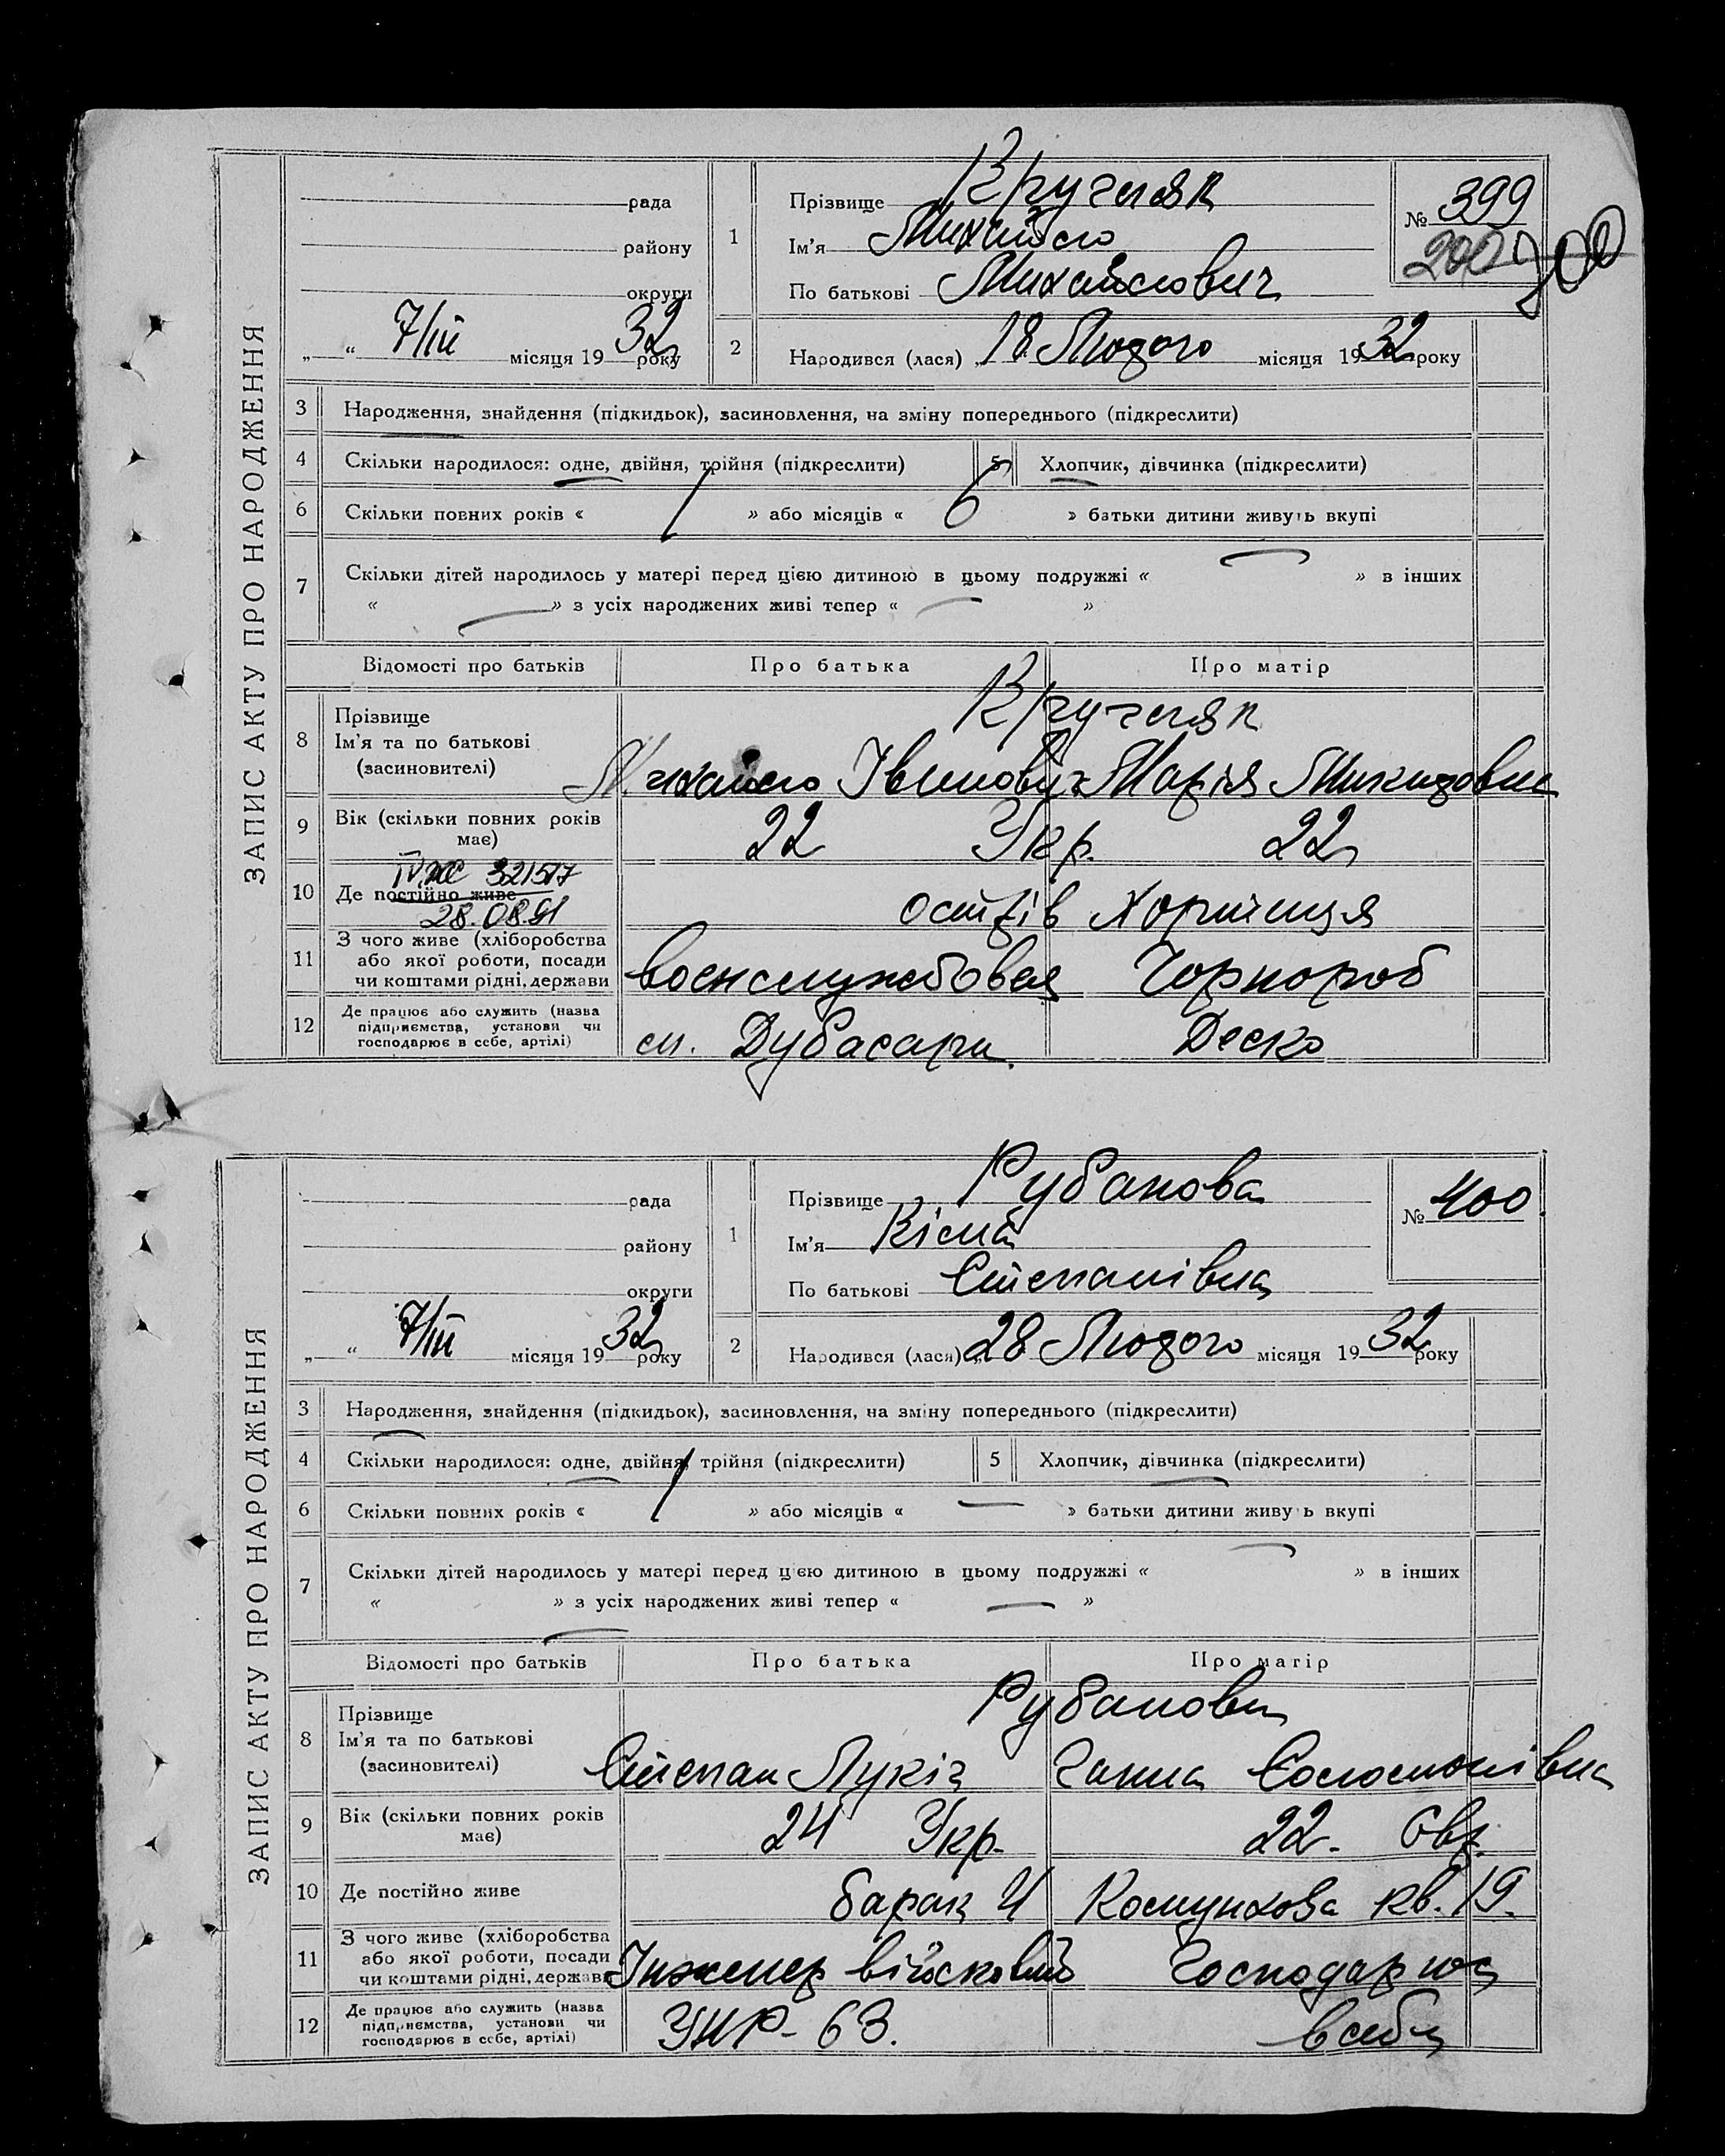 ЗАПИС АКТУ ПРО НАРОДЖЕННЯ
рада
району
округи
„ “ 7/III місяця 1932 року
1
Прізвище Кругляк
Ім'я Михайло
По батькові Михайлович
№ 399
200 200
2 Народився (лася) „18 Лютого місяця 1932 року
3 Народження, знайдення (підкидьок), засиновлення, на зміну попереднього (підкреслити)
4 Скільки народилося: одне, двійня, трійня (підкреслити) 5 Хлопчик, дівчинка (підкреслити)
6 Скільки повних років « 1 » або місяців « 6 » батьки дитини живуть вкупі
7 Скільки дітей народилось у матері перед цією дитиною в цьому подружжі « — » в інших
« — » з усіх народжених живі тепер « — »
Відомості про батьків Про батька Про матір
8 Прізвище
Ім'я та по батькові
(засиновителі)
Кругляк
Михайло Іванович Марія Микидовна
9 Вік (скільки повних років має) 22 Укр. 22
10 Де постійно живе острів Хортиця
321517
28.08.91
11 З чого живе (хліборобства або якої роботи, посади чи коштами рідні, держави
воєнслужбовец Чорнороб
12 Де працює або служить (назва підприємства, установи чи господарює в себе, артілі)
м. Дубасари. Деско
ЗАПИС АКТУ ПРО НАРОДЖЕННЯ
рада
району
округи
„ “ 7/III місяця 1932 року
1
Прізвище Рубанова
Ім'я Кіма
По батькові Степанівна
№ 400.
2 Народився (лася) „28 Лютого місяця 1932 року
3 Народження, знайдення (підкидьок), засиновлення, на зміну попереднього (підкреслити)
4 Скільки народилося: одне, двійня, трійня (підкреслити) 5 Хлопчик, дівчинка (підкреслити)
6 Скільки повних років « 1 » або місяців « — » батьки дитини живуть вкупі
7 Скільки дітей народилось у матері перед цією дитиною в цьому подружжі « — » в інших
« — » з усіх народжених живі тепер « — »
Відомості про батьків Про батька Про матір
8 Прізвище
Ім'я та по батькові
(засиновителі)
Рубанови
Степан Лукіч Ганна Соломонівна
9 Вік (скільки повних років має) 24 Укр. 22. Євр.
10 Де постійно живе барак 4 Комунхоза кв. 19.
11 З чого живе (хліборобства або якої роботи, посади чи коштами рідні, держави
Інженер військовий Господарює
12 Де працює або служить (назва підприємства, установи чи господарює в себе, артілі)
УНР-63. в себе